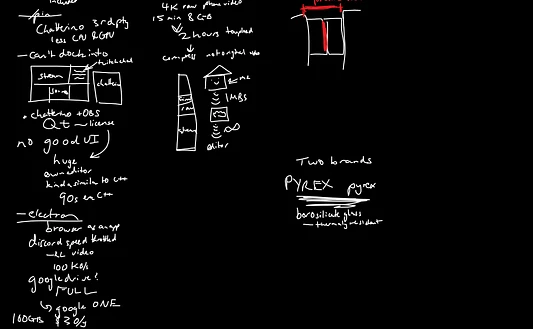 pin
Chatterino 3rd pty
less CPU RGPU
- can't dock into
steam
chatterino
• chatterino + OBS
Qt - license
no good UI
huge
own editor
kinda similar to C++
90s en C++
- electron
browser as an app
discord speed throttled
video
100 KB/s
google drive!
FULL
↳ google ONE
100GB $30/s
4K raw phone video
15 min 8GB
↘ 2 hours
compress not original video
me
1 MBS
∞
editor
Two brands
PYREX pyrex
borosilicate glass
- thermally resistant